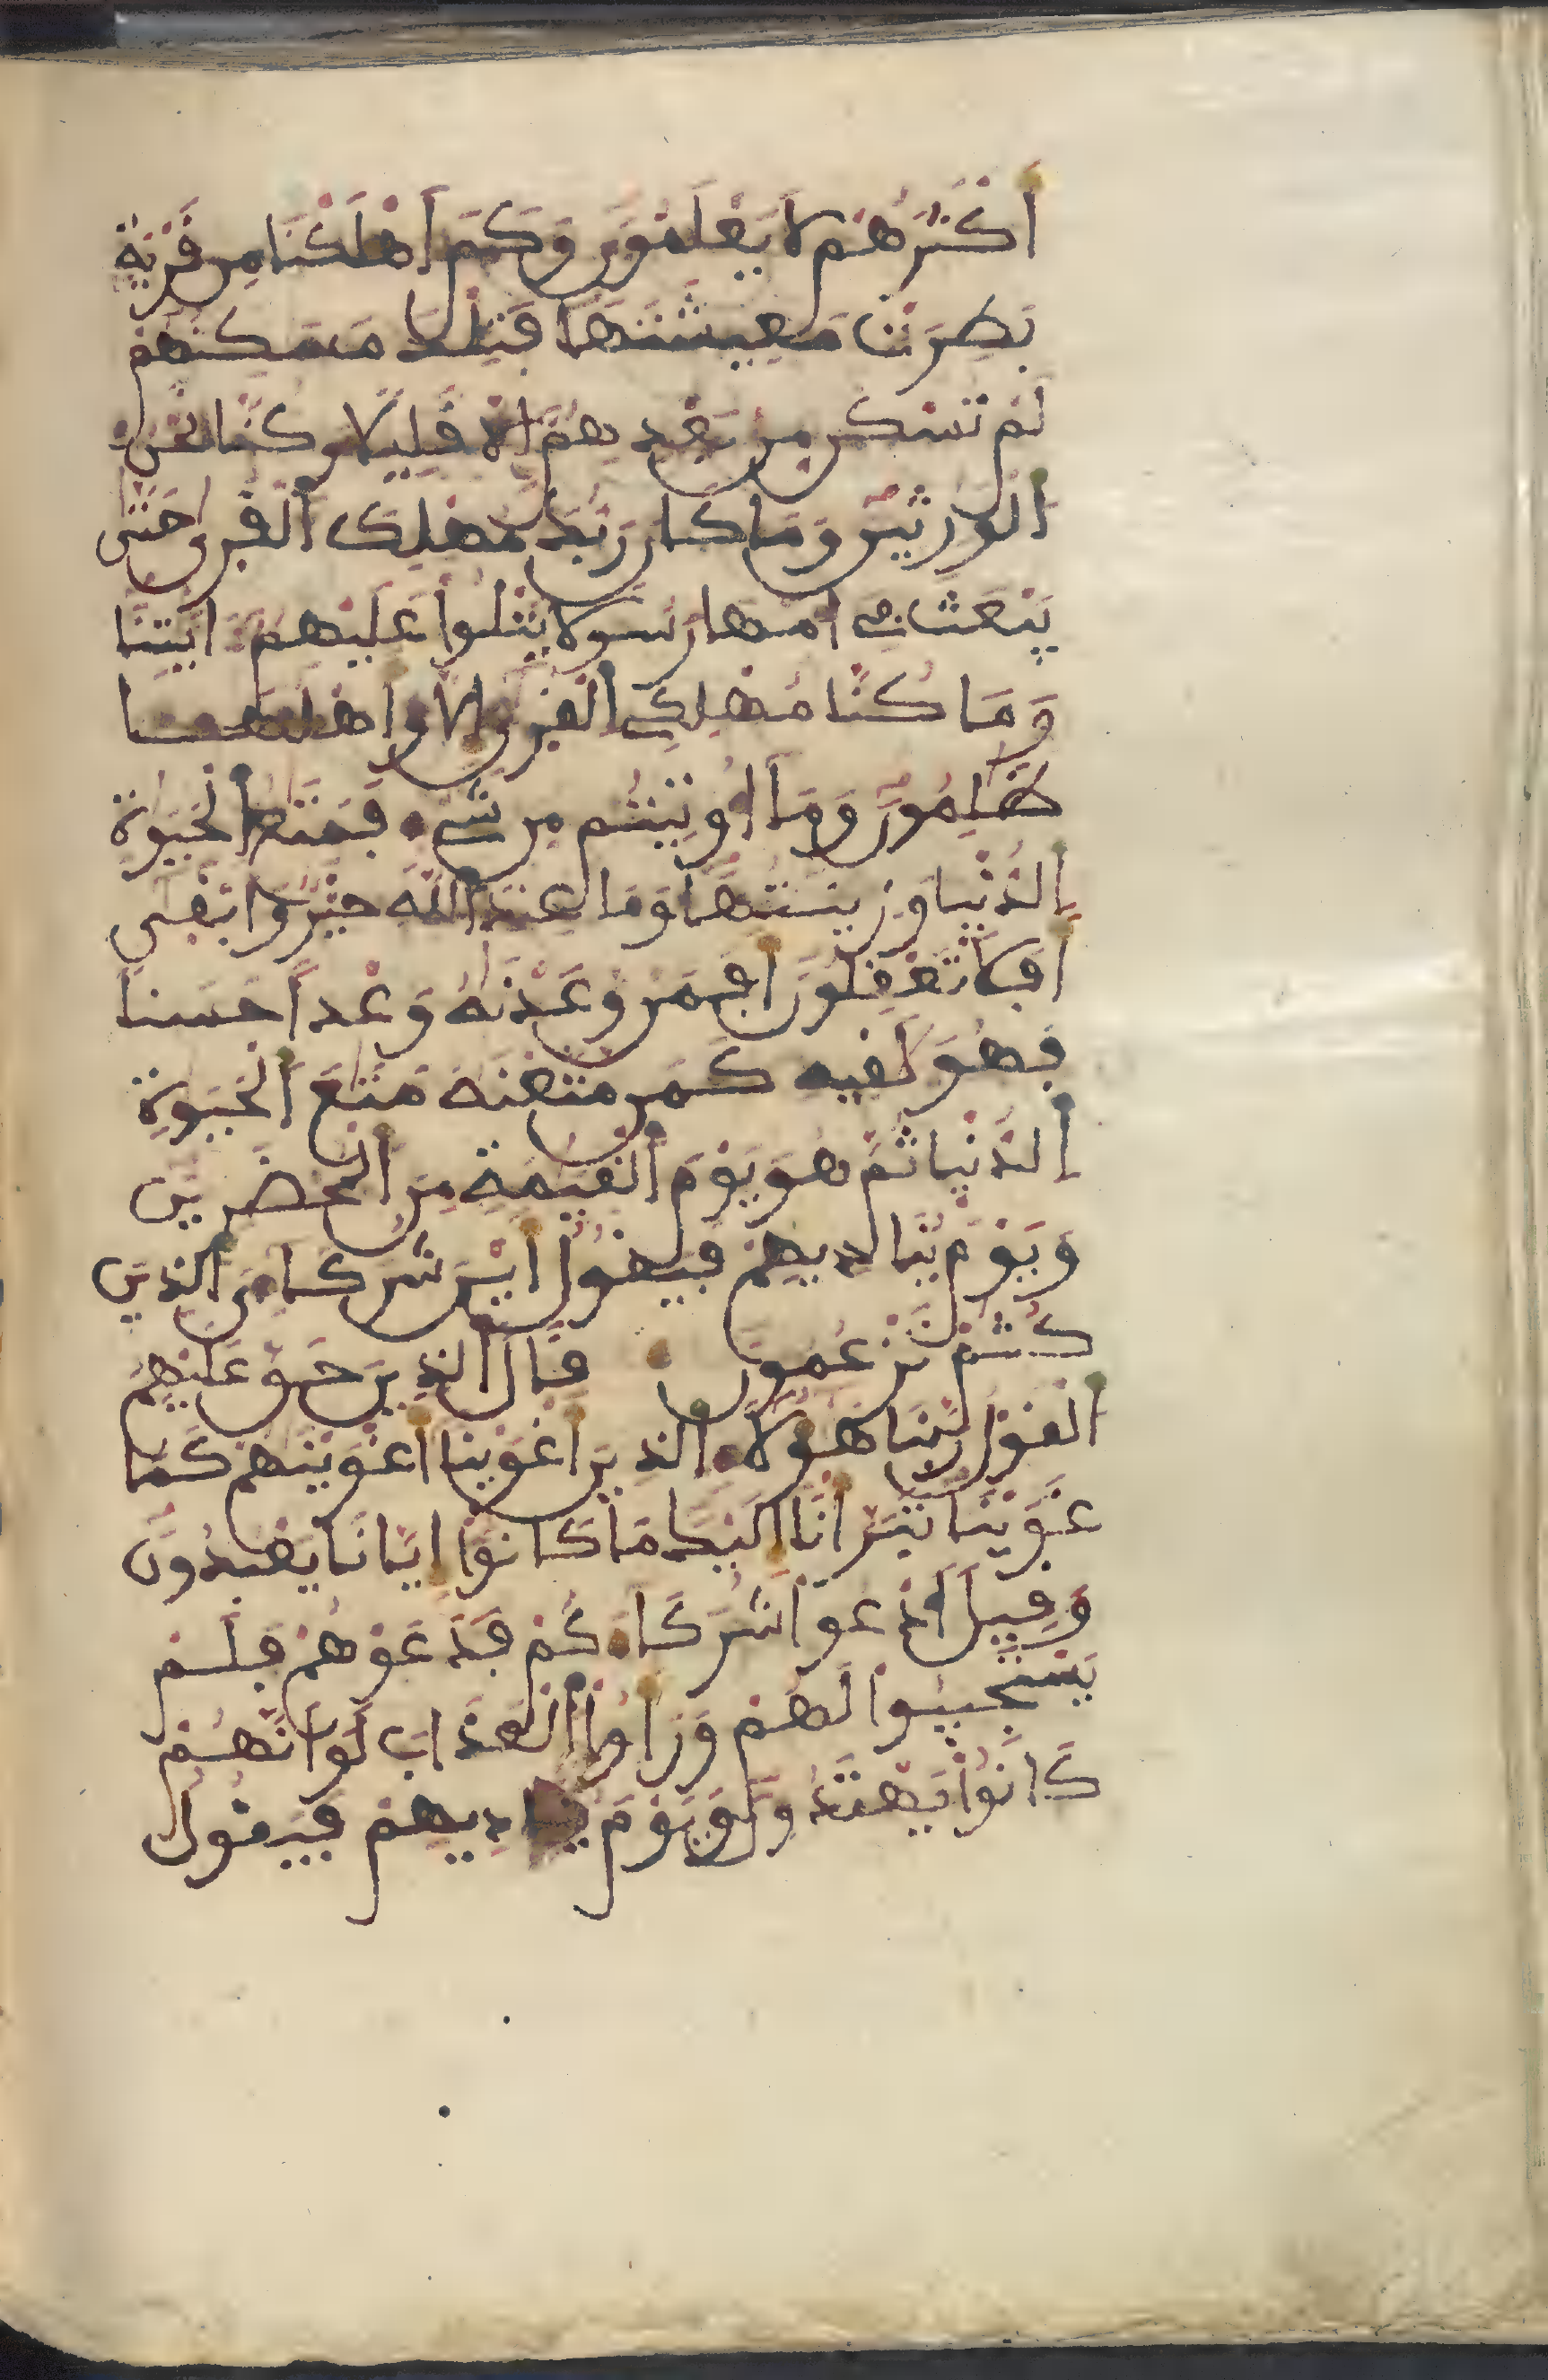 أَكْثَرَهُمْ لَا يَعْلَمُونَ وَكَمَ اَهْلَكْنَا مِن قَرْيَةٍ
بَطِرَتْ مَعِيشَتَهَا فَتِلْكَ مَسَٰكِنُهُمْ
لَمْ تُسْكَن مِّنۢ بَعْدِهِمُۥٓ إِلَّا قَلِيلًا وَكُنَّا نَحْنُ
اُ۬لْوَٰرِثِينَ وَمَا كَانَ رَبُّكَ مُهْلِكَ اَ۬لْقُر۪ىٰ حَتَّىٰ
يَبْعَثَ فِےٓ أُمِّهَا رَسُولًا يَتْلُوا۟ عَلَيْهِمُۥٓ ءَايَٰتِنَا
وَمَا كُنَّا مُهْلِكِے اِ۬لْقُر۪ىٰٓ إِلَّا وَأَهْلُهَا
ظَٰلِمُونَ وَمَآ أُوتِيتُم مِّن شَےْءٍ فَمَتَٰعُ اُ۬لْحَيَوٰةِ
اِ۬لدُّنْيَا وَزِينَتُهَا وَمَا عِندَ اَ۬للَّهِ خَيْرٌ وَأَبْقَىٰٓ
أَفَلَا تَعْقِلُونَ أَفَمَنْ وَعَدْنَٰهُ وَعْدًا حَسَنًا
فَهُوَ لَٰقِيهِ كَمَن مَّتَّعْنَٰهُ مَتَٰعَ اَ۬لْحَيَوٰةِ
اِ۬لدُّنْيَا ثُمَّ هُوَ يَوْمَ اَ۬لْقِيَٰمَةِ مِنَ اَ۬لْمُحْضَرِينَ
وَيَوْمَ يُنَادِيهِمْ فَيَقُولُ أَيْنَ شُرَكَاءِيَ اَ۬لذِينَ
كُنتُمْ تَزْعُمُونَ قَالَ اَ۬لذِينَ حَقَّ عَلَيْهِمُ
اُ۬لْقَوْلُ رَبَّنَا هَٰٓؤُلَآءِ اِ۬لذِينَ أَغْوَيْنَآ أَغْوَيْنَٰهُمْ كَمَا
غَوَيْنَا تَبَرَّأْنَآ إِلَيْكَ مَا كَانُوٓا۟ إِيَّانَا يَعْبُدُونَ
وَقِيلَ اَ۟دْعُوا۟ شُرَكَآءَكُمْ فَدَعَوْهُمْ فَلَمْ
يَسْتَجِيبُوا۟ لَهُمْ وَرَأَوُا۟ اُ۬لْعَذَابَ لَوَ اَنَّهُمْ
كَانُوا۟ يَهْتَدُونَ وَيَوْمَ يُنَادِيهِمْ فَيَقُولُ